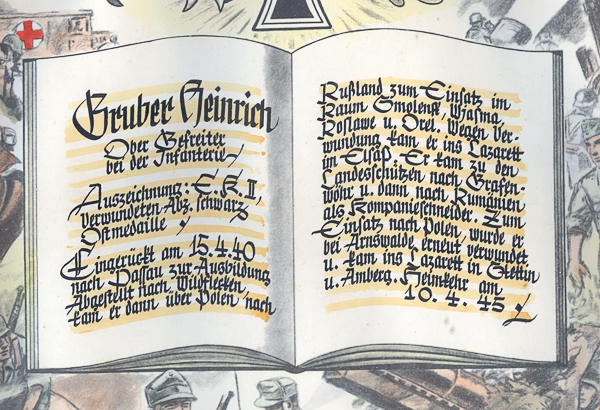 Gruber Heinrich
Ober Gefreiter
bei der Infanterie
Auszeichnung: E.K.I,
Verwundeten Abz. schwarz
Ostmedaille
Eingerückt am 15.4.40
nach Passau zur Ausbildung
Abgestellt nach Wildflecken,
kam er dann über Polen, nach
Rußland zum Einsatz im
Raum Smolensk, Wasma,
Roslawe u. Orel. Wegen Ver-
wundung kam er ins Lazarett
im Elsaß. Er kam zu den
Landesschützen nach Grafen-
wöhr u. dann nach Rumänien
als Kompanieschneider. Zum
Einsatz nach Polen, wurde er
bei Arnswalde erneut verwundet
u. kam ins Lazarett in Stettin
u. Amberg. Heimkehr am
10. 4. 45